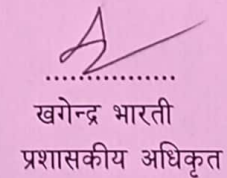 ....................
खगेन्द्र भारती
प्रशासकीय अधिकृत